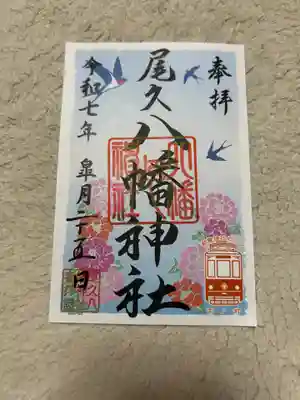 奉拝
尾久八幡神社
令和七年 皐月二十五日